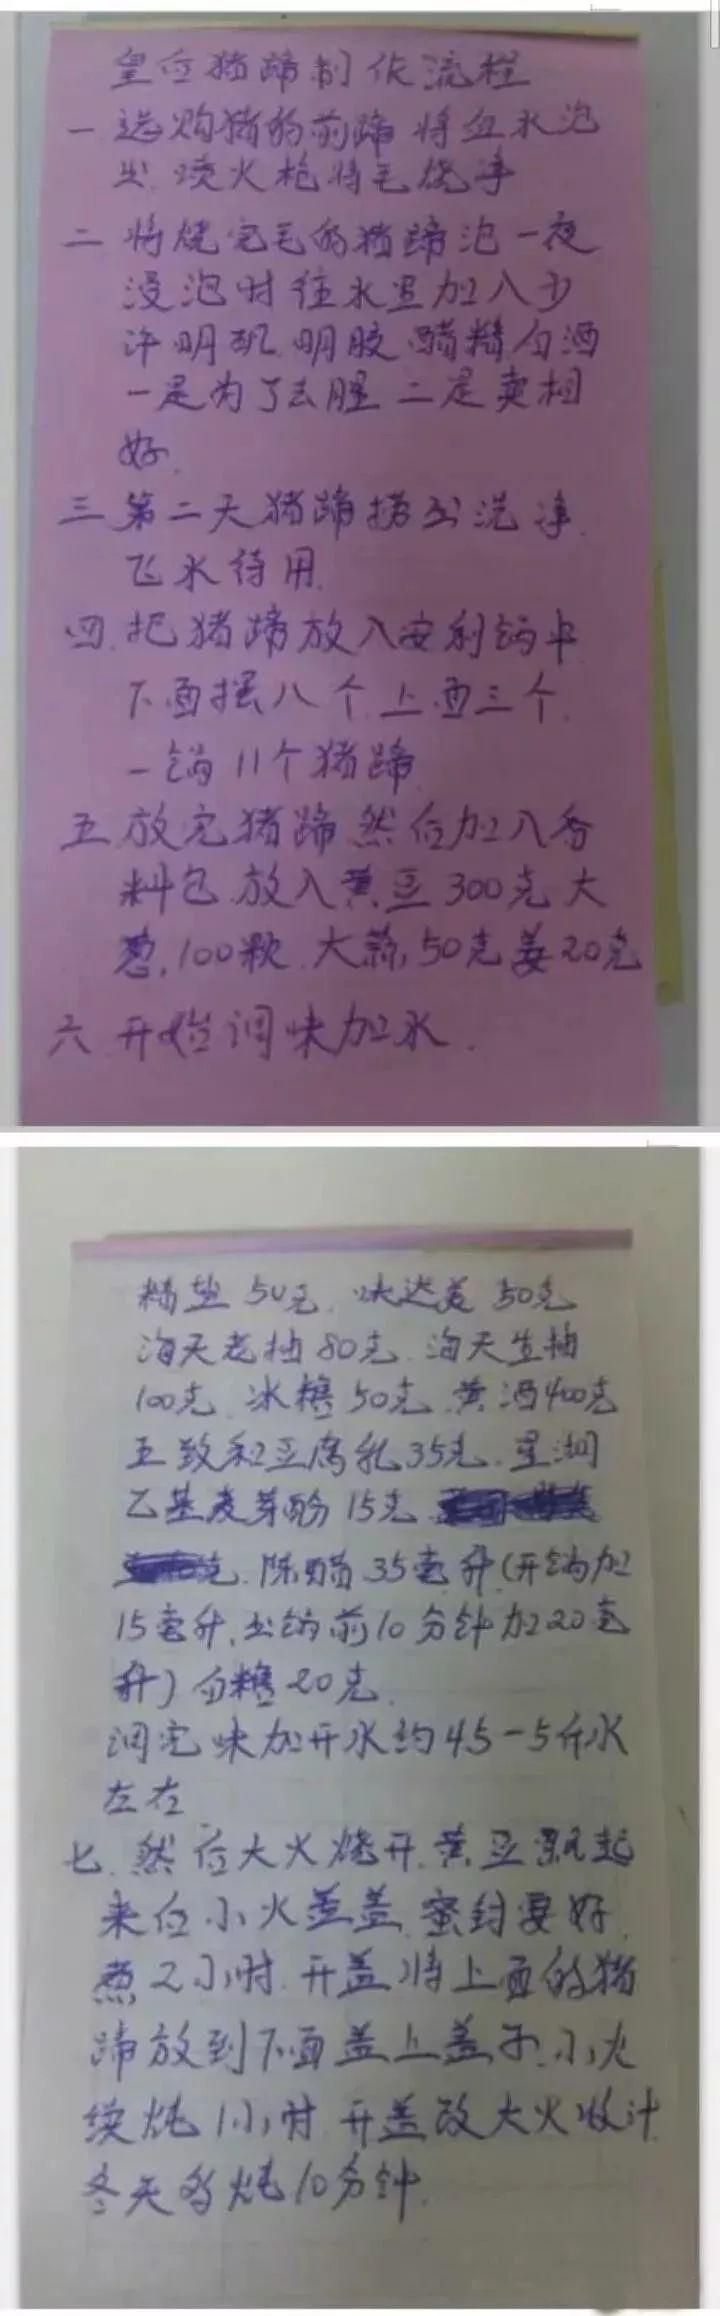 皇位猪蹄制作流程
一 选购猪的前蹄 将血水泡
出 喷火枪将毛烧净
二 将烧完毛的猪蹄泡一夜
浸泡时往水里加入少
许明矾 明胶 醋精 白酒
一是为了去腥 二是卖相
好.
三 第二天猪蹄捞出洗净.
飞水待用.
四.把猪蹄放入安利锅中
下面摆八个.上面三个.
一锅11个猪蹄
五 放完猪蹄 然后加入香
料包.放入黄豆300克 大
葱,100颗.大蒜,50克姜20克
六 开始调味加水.
精盐50克.味达美50克
海天老抽80克.海天生抽
100克.冰糖50克.黄酒400克
王致和豆腐乳35克.星湖
乙基麦芽酚15克
克.陈醋35毫升(开锅加
15毫升,出锅前10分钟加20毫
升)白糖20克.
调完味加开水约45-5斤水
左右
七.然后大火烧开.黄豆飘起
来后小火盖盖.蜜封要好.
煮2小时.开盖将上面的猪
蹄放到下面盖上盖子.小火
续炖1小时.开盖改大火收汁.
冬天多炖10分钟.